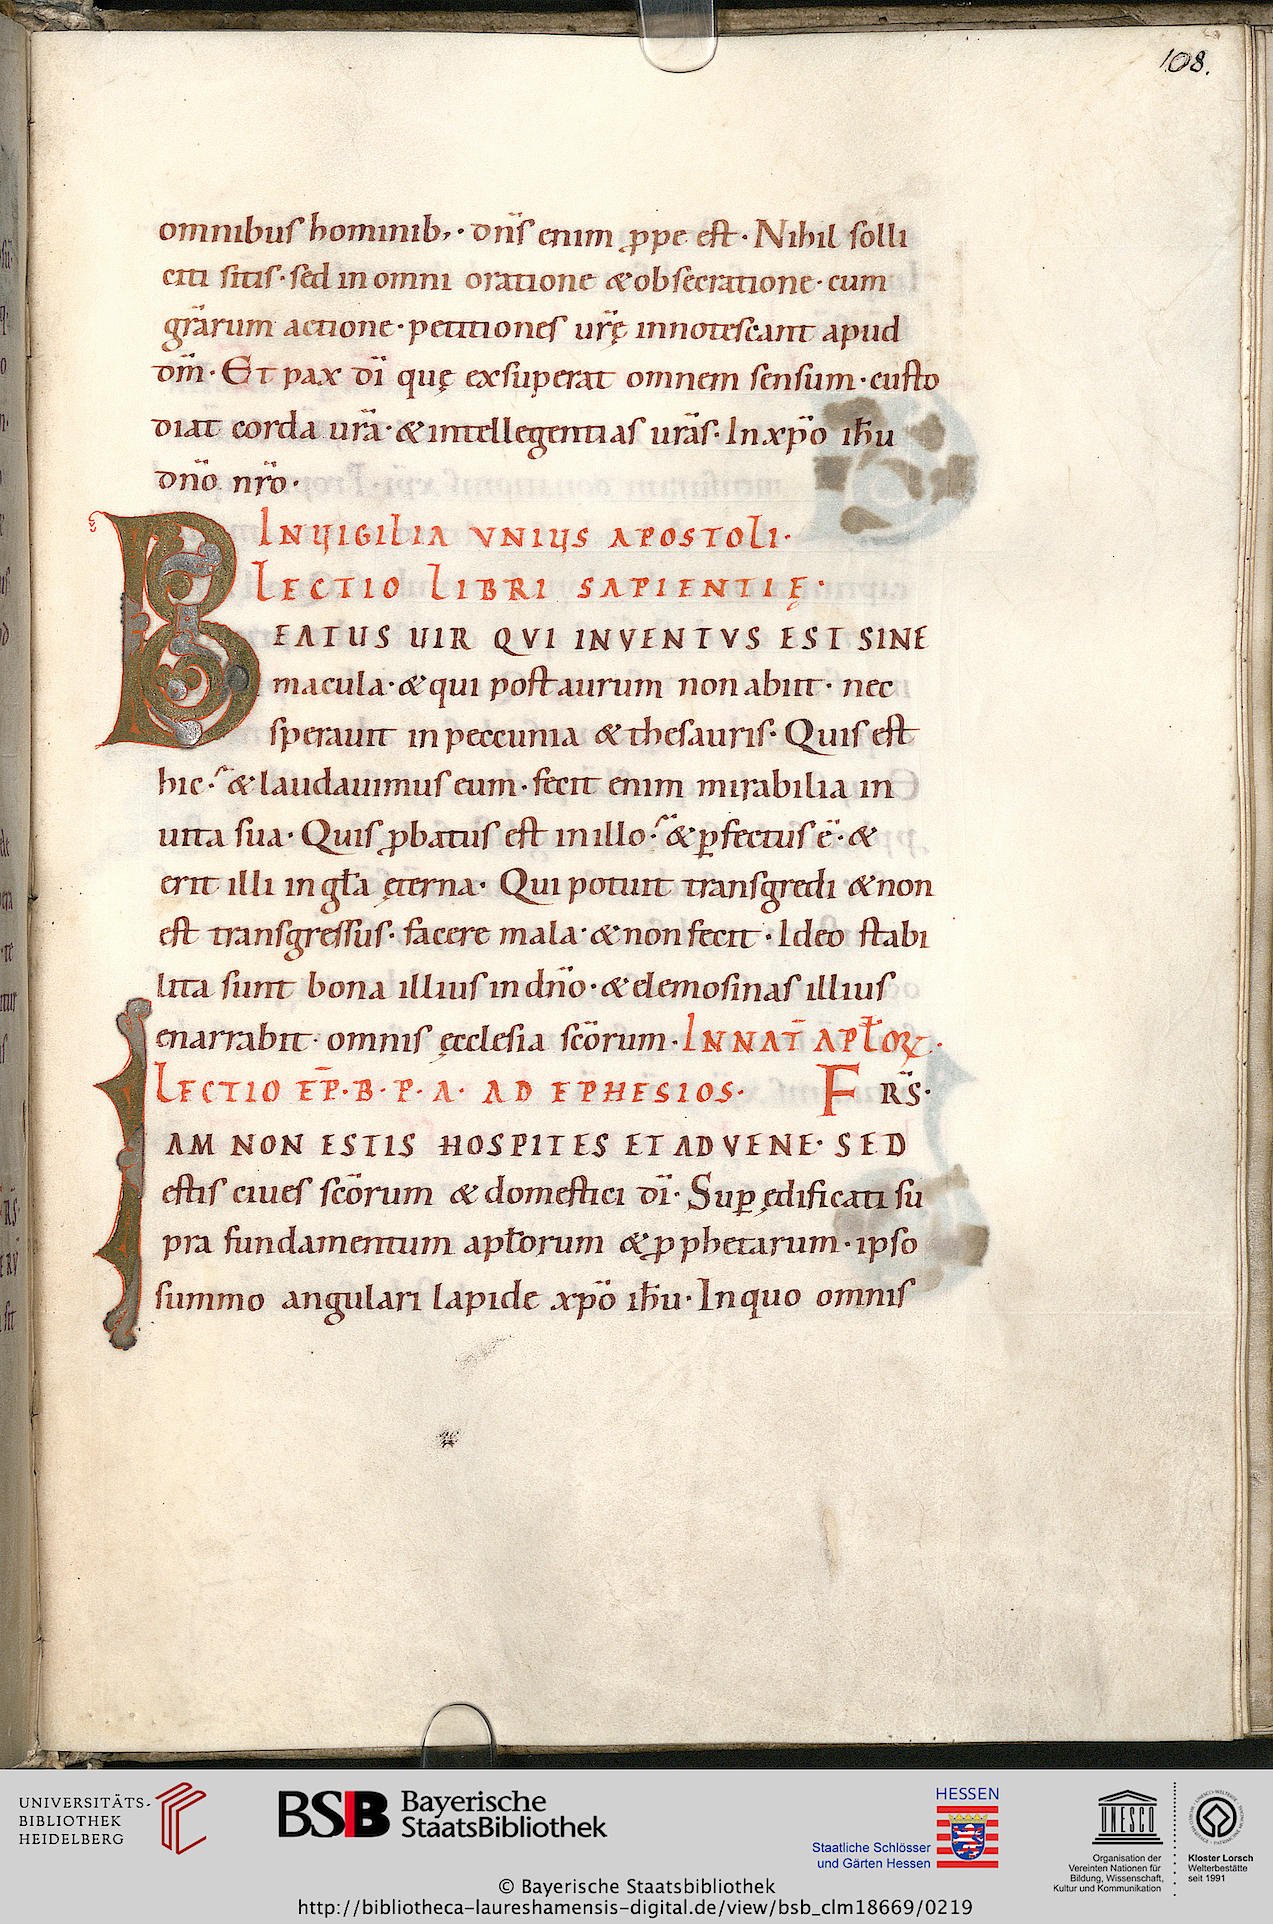 108.
omnibus hominib; · dn̄s enim ꝓpe est · Nihil solli
citi sitis · sed in omni oratione & obsecratione · cum
gr̄arum actione · petitiones ur̄ę innotescant apud
dm̄ · Et pax dī quę exsuperat omnem sensum · custo
diat corda ur̄a · & intellegentias ur̄as · In xp̄o ih̄u
dn̄o nr̄o ·
IN VIGILIA VNIUS APOSTOLI ·
LECTIO LIBRI SAPIENTIĘ ·
BEATUS UIR QVI INVENTVS EST SINE
macula · & qui post aurum non abiit · nec
sperauit in peccunia & thesauris · Quis est
hic · & laudauimus eum · fecit enim mirabilia in
uita sua · Quis ꝓbatus est in illo · & ꝑfectus ē · &
erit illi in gl̄a ęterna · Qui potuit transgredi & non
est transgressus · facere mala · & non fecit · Ideo stabi
lita sunt bona illius in dn̄o · & elemosinas illius
enarrabit · omnis ęcclesia sc̄orum · IN NAT̄ APL̄OꝜ ·
LECTIO EP̄ · B · P · A · AD EPHESIOS · FR̄S ·
IAM NON ESTIS HOSPITES ET ADVENE · SED
estis ciues sc̄orum & domestici dī · Suꝑ ędificati su
pra fundamentum apl̄orum & ꝓphetarum · ipso
summo angulari lapide xp̄o ih̄u · In quo omnis
UNIVERSITÄTS-
BIBLIOTHEK
HEIDELBERG
BSB Bayerische
StaatsBibliothek
HESSEN
Staatliche Schlösser
und Gärten Hessen
UNESCO
Organisation der
Vereinten Nationen für
Bildung, Wissenschaft,
Kultur und Kommunikation
Kloster Lorsch
Welterbestätte
seit 1991
© Bayerische Staatsbibliothek
http://bibliotheca-laureshamensis-digital.de/view/bsb_clm18669/0219